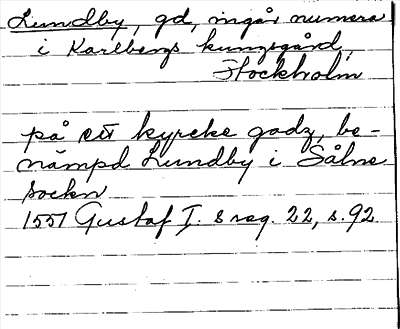 Lundby, gd, ingår numera
i Karlbergs kungsgård,
Stockholm
på ett kyrcke godz, be-
nämpd Lundby i Sålne
sockn
1551 Gustaf I. s reg. 22, s. 92.